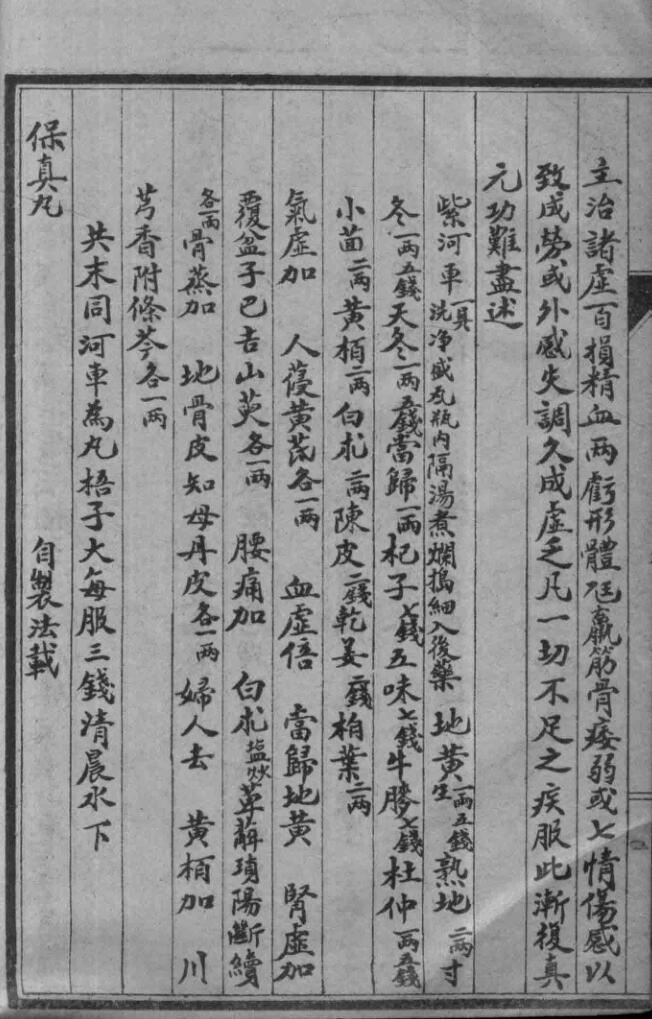 主治諸虛百損精血兩虧形體尫羸筋骨痿弱或七情傷感以
致成勞或外感失調久成虛乏凡一切不足之疾服此漸復真
元功難盡述
紫河車一具洗净盛瓦瓶内隔湯煮爛搗細入後藥 地黃生一兩五錢熟地二兩寸
冬一兩五錢天冬一兩五錢當歸一兩杞子七錢五味七錢牛膝七錢杜仲一兩五錢
小茴二兩黃栢二兩白朮二兩陳皮二錢乾姜二錢柏葉二兩
氣虛加 人葠黃芪各一兩 血虛倍 當歸地黃 腎虛加
覆盆子巴吉山萸各一兩 腰痛加 白朮塩炒萆薢瑣陽斷續
各一兩骨蒸加 地骨皮知母丹皮各一兩 婦人去 黃栢加 川
芎香附條芩各一兩
共末同河車為丸梧子大每服三錢清晨水下
保真丸 自製法載